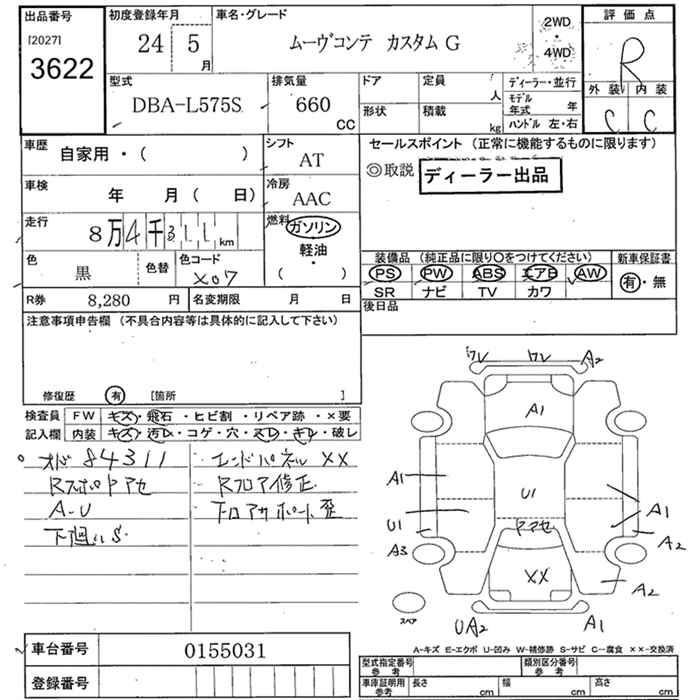 出品番号 初度登録年月 車名・グレード 2WD・4WD 評価点
[2027] 24 5月 ムーヴコンテ カスタムG R
3622
型式 排気量 ドア 定員 人 ディーラー・並行 外装 内装
DBA-L575S 660 CC 形状 積載 kg モデル年式 年 C C
ハンドル 左・右
車歴 自家用・( ) シフト AT セールスポイント (正常に機能するものに限ります)
◎取説 ディーラー出品
車検 年 月( 日) 冷房 AAC
走行 8万4千311km 燃料 ガソリン
軽油・
( )
色 黒 色替 色コード X07
装備品 (純正品に限り○をつけてください) 新車保証書
PS PW ABS エアB AW 有・無
SR ナビ TV カワ
R券 8,280 円 名変期限 月 日 後日品
注意事項申告欄 (不具合内容等は具体的に記入して下さい)
修復歴 有 [箇所 ]
検査員 FW キズ・飛石・ヒビ割・リペア跡・×要
記入欄 内装 キズ・汚レ・コゲ・穴・スレ・キレ・破レ
オド 84311 エンドパネル XX
Rスポトアセ Rフロア修正
A-U フロアサポート歪
下廻りS
ワレ ワレ A2
A1
A1
U1 U1 A1
ドアセ
A3 A2
XX A2
スペア UA2 A1
A-キズ E-エクボ U-凹み W-補修跡 S-サビ C-腐食 ××-交換済
車台番号 0155031
登録番号
型式指定番号 参考 類別区分番号 参考
車庫証明用 参考 長さ cm 幅 cm 高さ cm